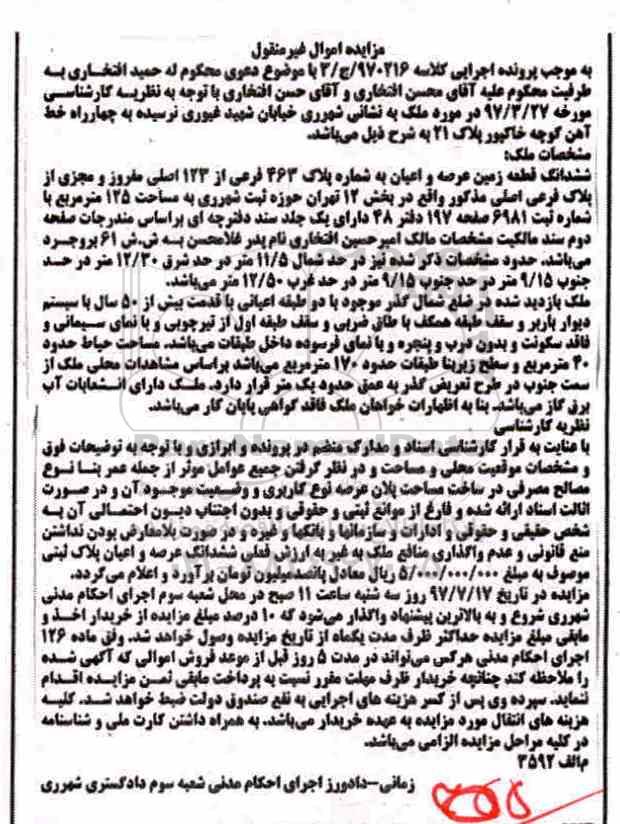 مزایده اموال غیرمنقول
به موجب پرونده اجرایی کلاسه ۹۷۰۲۱۶/ج/۳ با موضوع دعوی محکوم له حمید افتخاری به
طرفیت محکوم علیه آقای محسن افتخاری و آقای حسن افتخاری با توجه به نظریه کارشناسی
مورخه ۹۷/۳/۲۷ در مورد ملک به نشانی شهرری خیابان شهید غیوری نرسیده به چهارراه خط
آهن کوچه خاکپور پلاک ۲۱ به شرح ذیل می‌باشد.
مشخصات ملک:
ششدانگ قطعه زمین عرصه و اعیان به شماره پلاک ۴۶۳ فرعی از ۱۲۳ اصلی مفروز و مجزی از
پلاک فرعی اصلی مذکور واقع در بخش ۱۲ تهران حوزه ثبت شهرری به مساحت ۱۲۵ مترمربع با
شماره ثبت ۶۹۸۱ صفحه ۱۹۷ دفتر ۴۸ دارای یک جلد سند دفترچه ای براساس مندرجات صفحه
دوم سند مالکیت مشخصات مالک امیرحسین افتخاری نام پدر غلامحسن به ش.ش ۶۱ بروجرد
می‌باشد. حدود مشخصات ذکر شده نیز در حد شمال ۱۱/۵ متر در حد شرق ۱۲/۳۰ متر در حد
جنوب ۹/۱۵ متر در حد جنوب ۹/۱۵ متر در حد غرب ۱۲/۵۰ متر می‌باشد.
ملک بازدید شده در ضلع شمال گذر موجود با دو طبقه اعیانی با قدمت بیش از ۵۰ سال با سیستم
دیوار باربر و سقف طبقه همکف با طاق ضربی و سقف طبقه اول از تیرچوبی و با نمای سیمانی و
فاقد سکونت و بدون درب و پنجره و با نمای فرسوده داخل طبقات می‌باشد. مساحت حیاط حدود
۴۰ مترمربع و سطح زیربنا طبقات حدود ۱۷۰ مترمربع می‌باشد براساس مشاهدات محلی ملک از
سمت جنوب در طرح تعریض گذر به عمق حدود یک متر قرار دارد. ملک دارای انشعابات آب
برق گاز می‌باشد. بنا به اظهارات خواهان ملک فاقد گواهی پایان کار می‌باشد.
نظریه کارشناسی
با عنایت به قرار کارشناسی اسناد و مدارک منضم در پرونده و ابرازی و با توجه به توضیحات فوق
و مشخصات موقعیت محلی و مساحت و در نظر گرفتن جمیع عوامل موثر از جمله عمر بنا نوع
مصالح مصرفی در ساخت مساحت پلان عرصه نوع کاربری و وضعیت موجود آن و در صورت
اثالت اسناد ارائه شده و فارغ از موانع ثبتی و حقوقی و بدون اجتناب دیون احتمالی آن به
شخص حقیقی و حقوقی و ادارات و سازمانها و بانکها و غیره و در صورت بلامعارض بودن نداشتن
منع قانونی و عدم واگذاری منافع ملک به غیر به ارزش فعلی ششدانگ عرصه و اعیان پلاک ثبتی
موصوف به مبلغ ۵/۰۰۰/۰۰۰/۰۰۰ ریال معادل پانصدمیلیون تومان برآورد و اعلام می‌گردد.
مزایده در تاریخ ۹۷/۷/۱۷ روز سه شنبه ساعت ۱۱ صبح در محل شعبه سوم اجرای احکام مدنی
شهرری شروع و به بالاترین پیشنهاد واگذار می‌شود که ۱۰ درصد مبلغ مزایده از خریدار اخذ و
مابقی مبلغ مزایده حداکثر ظرف مدت یکماه از تاریخ مزایده وصول خواهد شد. وفق ماده ۱۲۶
اجرای احکام مدنی هرکس می‌تواند در مدت ۵ روز قبل از موعد فروش اموالی که آگهی شده
را ملاحظه کند چنانچه خریدار ظرف مهلت مقرر نسبت به پرداخت مابقی ثمن مزایده اقدام
ننماید. سپرده وی پس از کسر هزینه های اجرایی به نفع صندوق دولت ضبط خواهد شد. کلیه
هزینه های انتقال مورد مزایده به عهده خریدار می‌باشد. به همراه داشتن کارت ملی و شناسنامه
در کلیه مراحل مزایده الزامی می‌باشد.
م‌الف ۳۵۹۲
زمانی–دادورز اجرای احکام مدنی شعبه سوم دادگستری شهرری